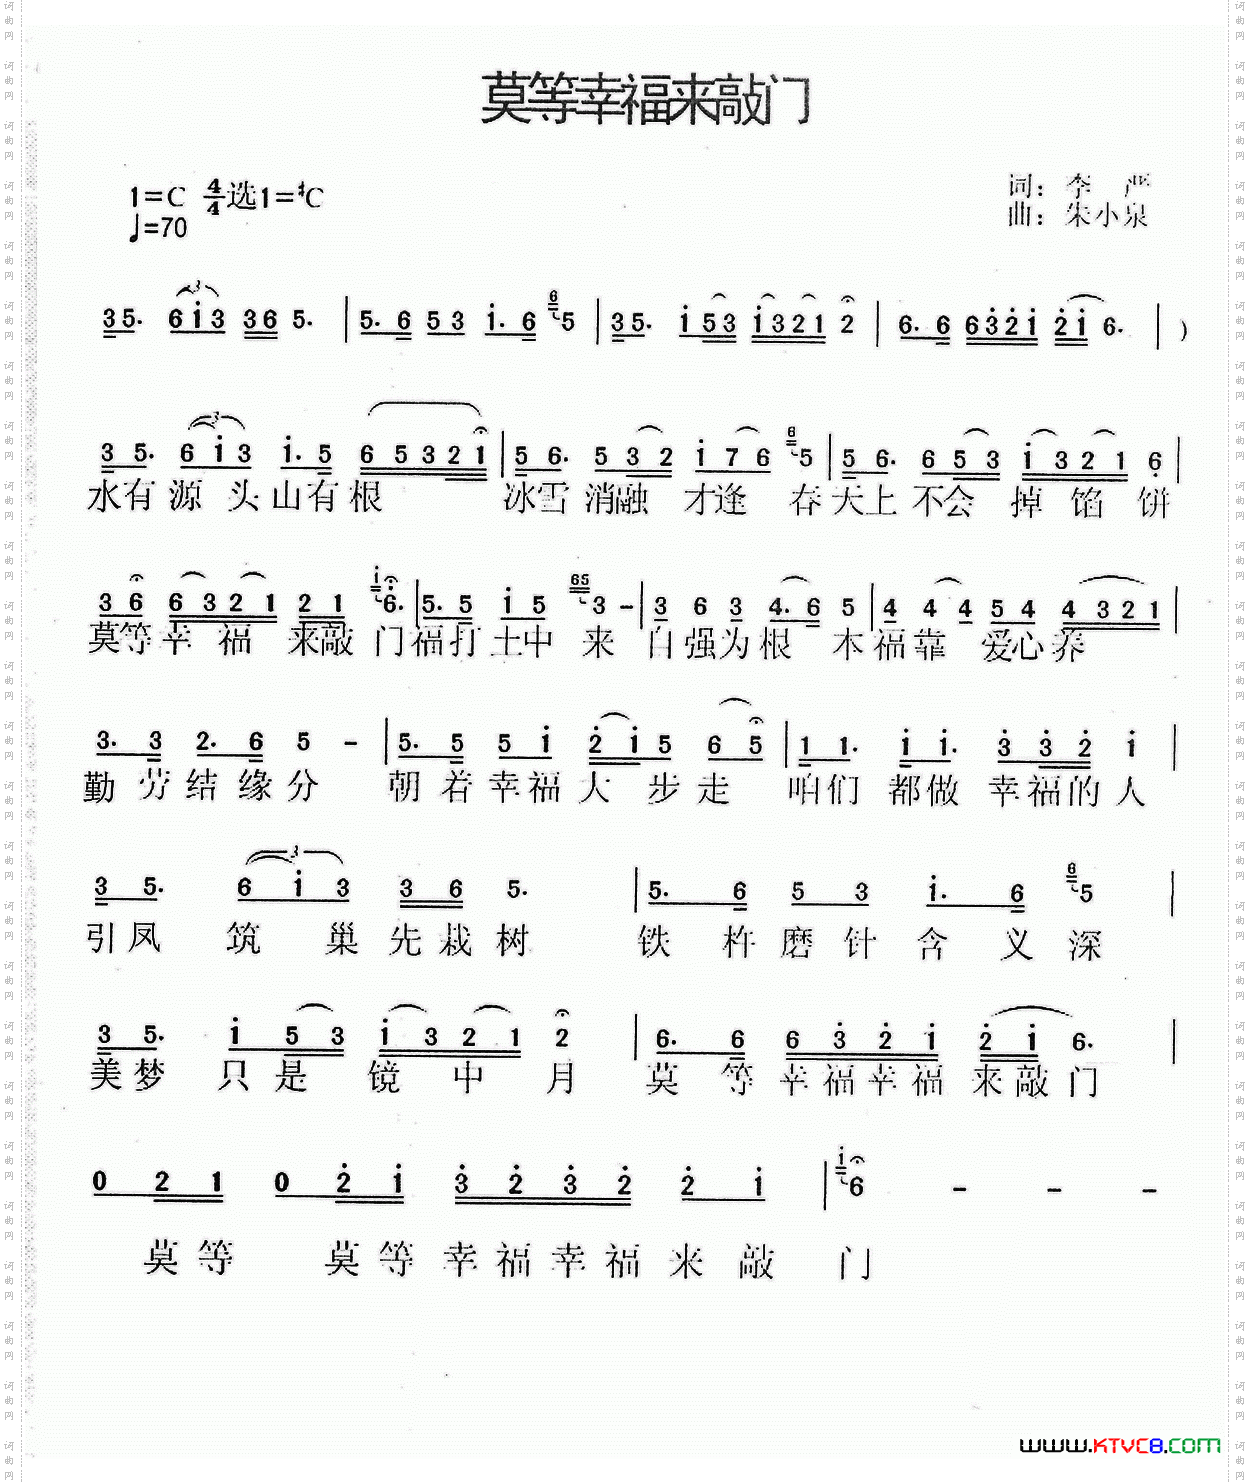 莫等幸福来敲门
1=C 4/4 选1=#C
♩=70
词：李 严
曲：朱小泉
35. 6i3 36 5. | 5. 6 5 3 i. 6 6 5 | 35. i 53 i321 2 | 6. 6 632i 2i 6. | )
3 5. 6 i 3 i. 5 6 5 3 2 1 | 5 6. 5 3 2 i 7 6 6 5 | 5 6. 6 5 3 i 3 2 1 6 |
水有 源 头 山有 根 冰雪 消融 才逢 春 天上 不会 掉 馅 饼
3 6 6 3 2 1 2 1 i 6. | 5. 5 i 5 65 3 – | 3 6 3 4. 6 5 | 4 4 4 5 4 4 3 2 1 |
莫等 幸 福 来敲 门 福打 土中 来 自强为根 本 福靠 爱心养
3. 3 2. 6 5 – | 5. 5 5 i 2 i 5 6 5 | 1 1. i i. 3 3 2 i |
勤 劳 结 缘 分 朝 着 幸 福 大 步 走 咱们 都做 幸福的人
3 5. 6 i 3 3 6 5. | 5. 6 5 3 i. 6 6 5 |
引凤 筑 巢 先栽树 铁 杵 磨 针 含 义 深
3 5. i 5 3 i 3 2 1 2 | 6. 6 6 3 2 i 2 i 6. |
美梦 只 是 镜 中 月 莫 等 幸福幸福 来敲门
0 2 1 0 2 i 3 2 3 2 2 i | i 6 – – –
莫等 莫等 幸福幸福 来 敲 门
www.KTVC8.com